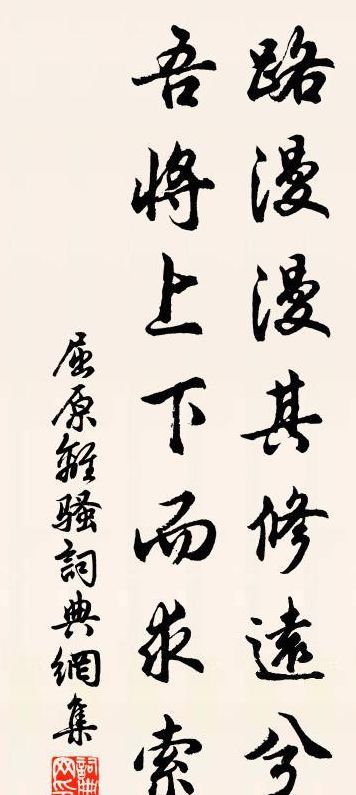 路漫漫其修遠兮
吾將上下而求索
屈原離騷詞典網集
詞典網